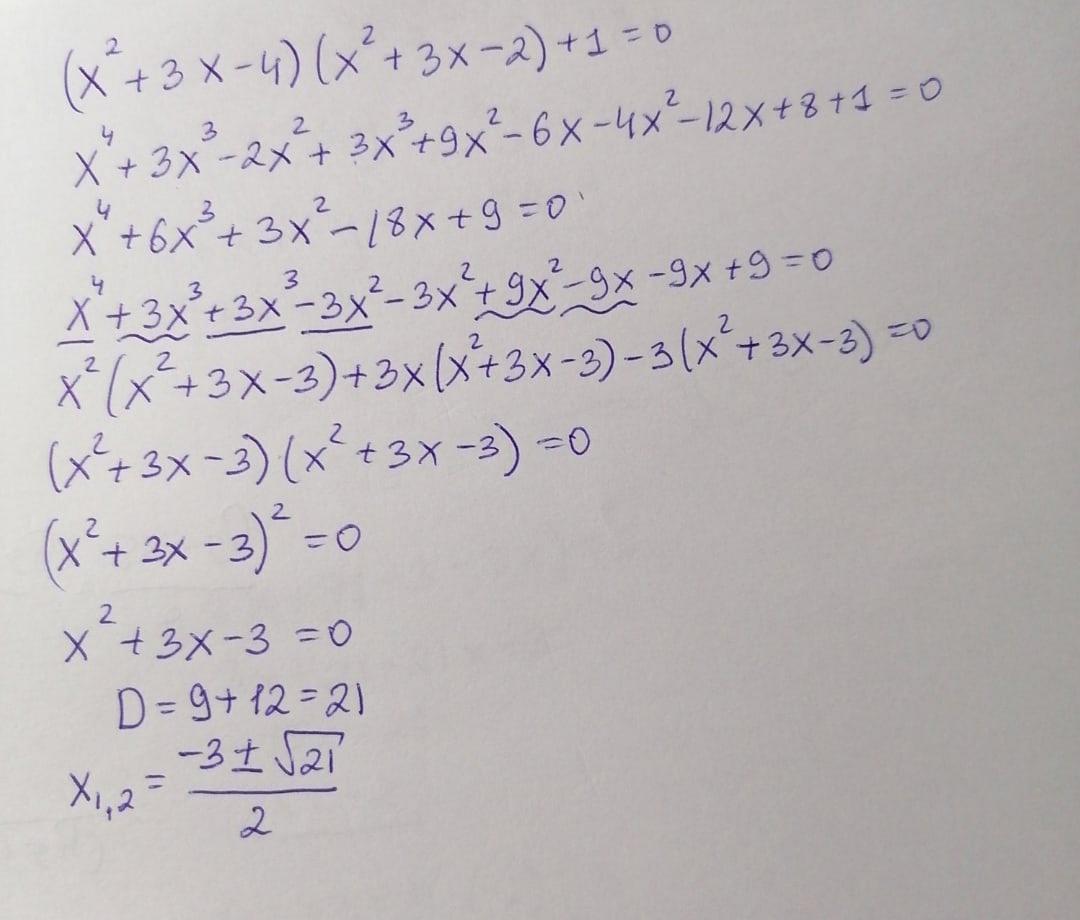 (x²+3x-4)(x²+3x-2)+1=0
x⁴+3x³-2x²+3x³+9x²-6x-4x²-12x+8+1=0
x⁴+6x³+3x²-18x+9=0
x⁴+3x³+3x³-3x²-3x²+9x²-9x-9x+9=0
x²(x²+3x-3)+3x(x²+3x-3)-3(x²+3x-3)=0
(x²+3x-3)(x²+3x-3)=0
(x²+3x-3)²=0
x²+3x-3=0
D=9+12=21
x₁,₂=(-3±√21)/2